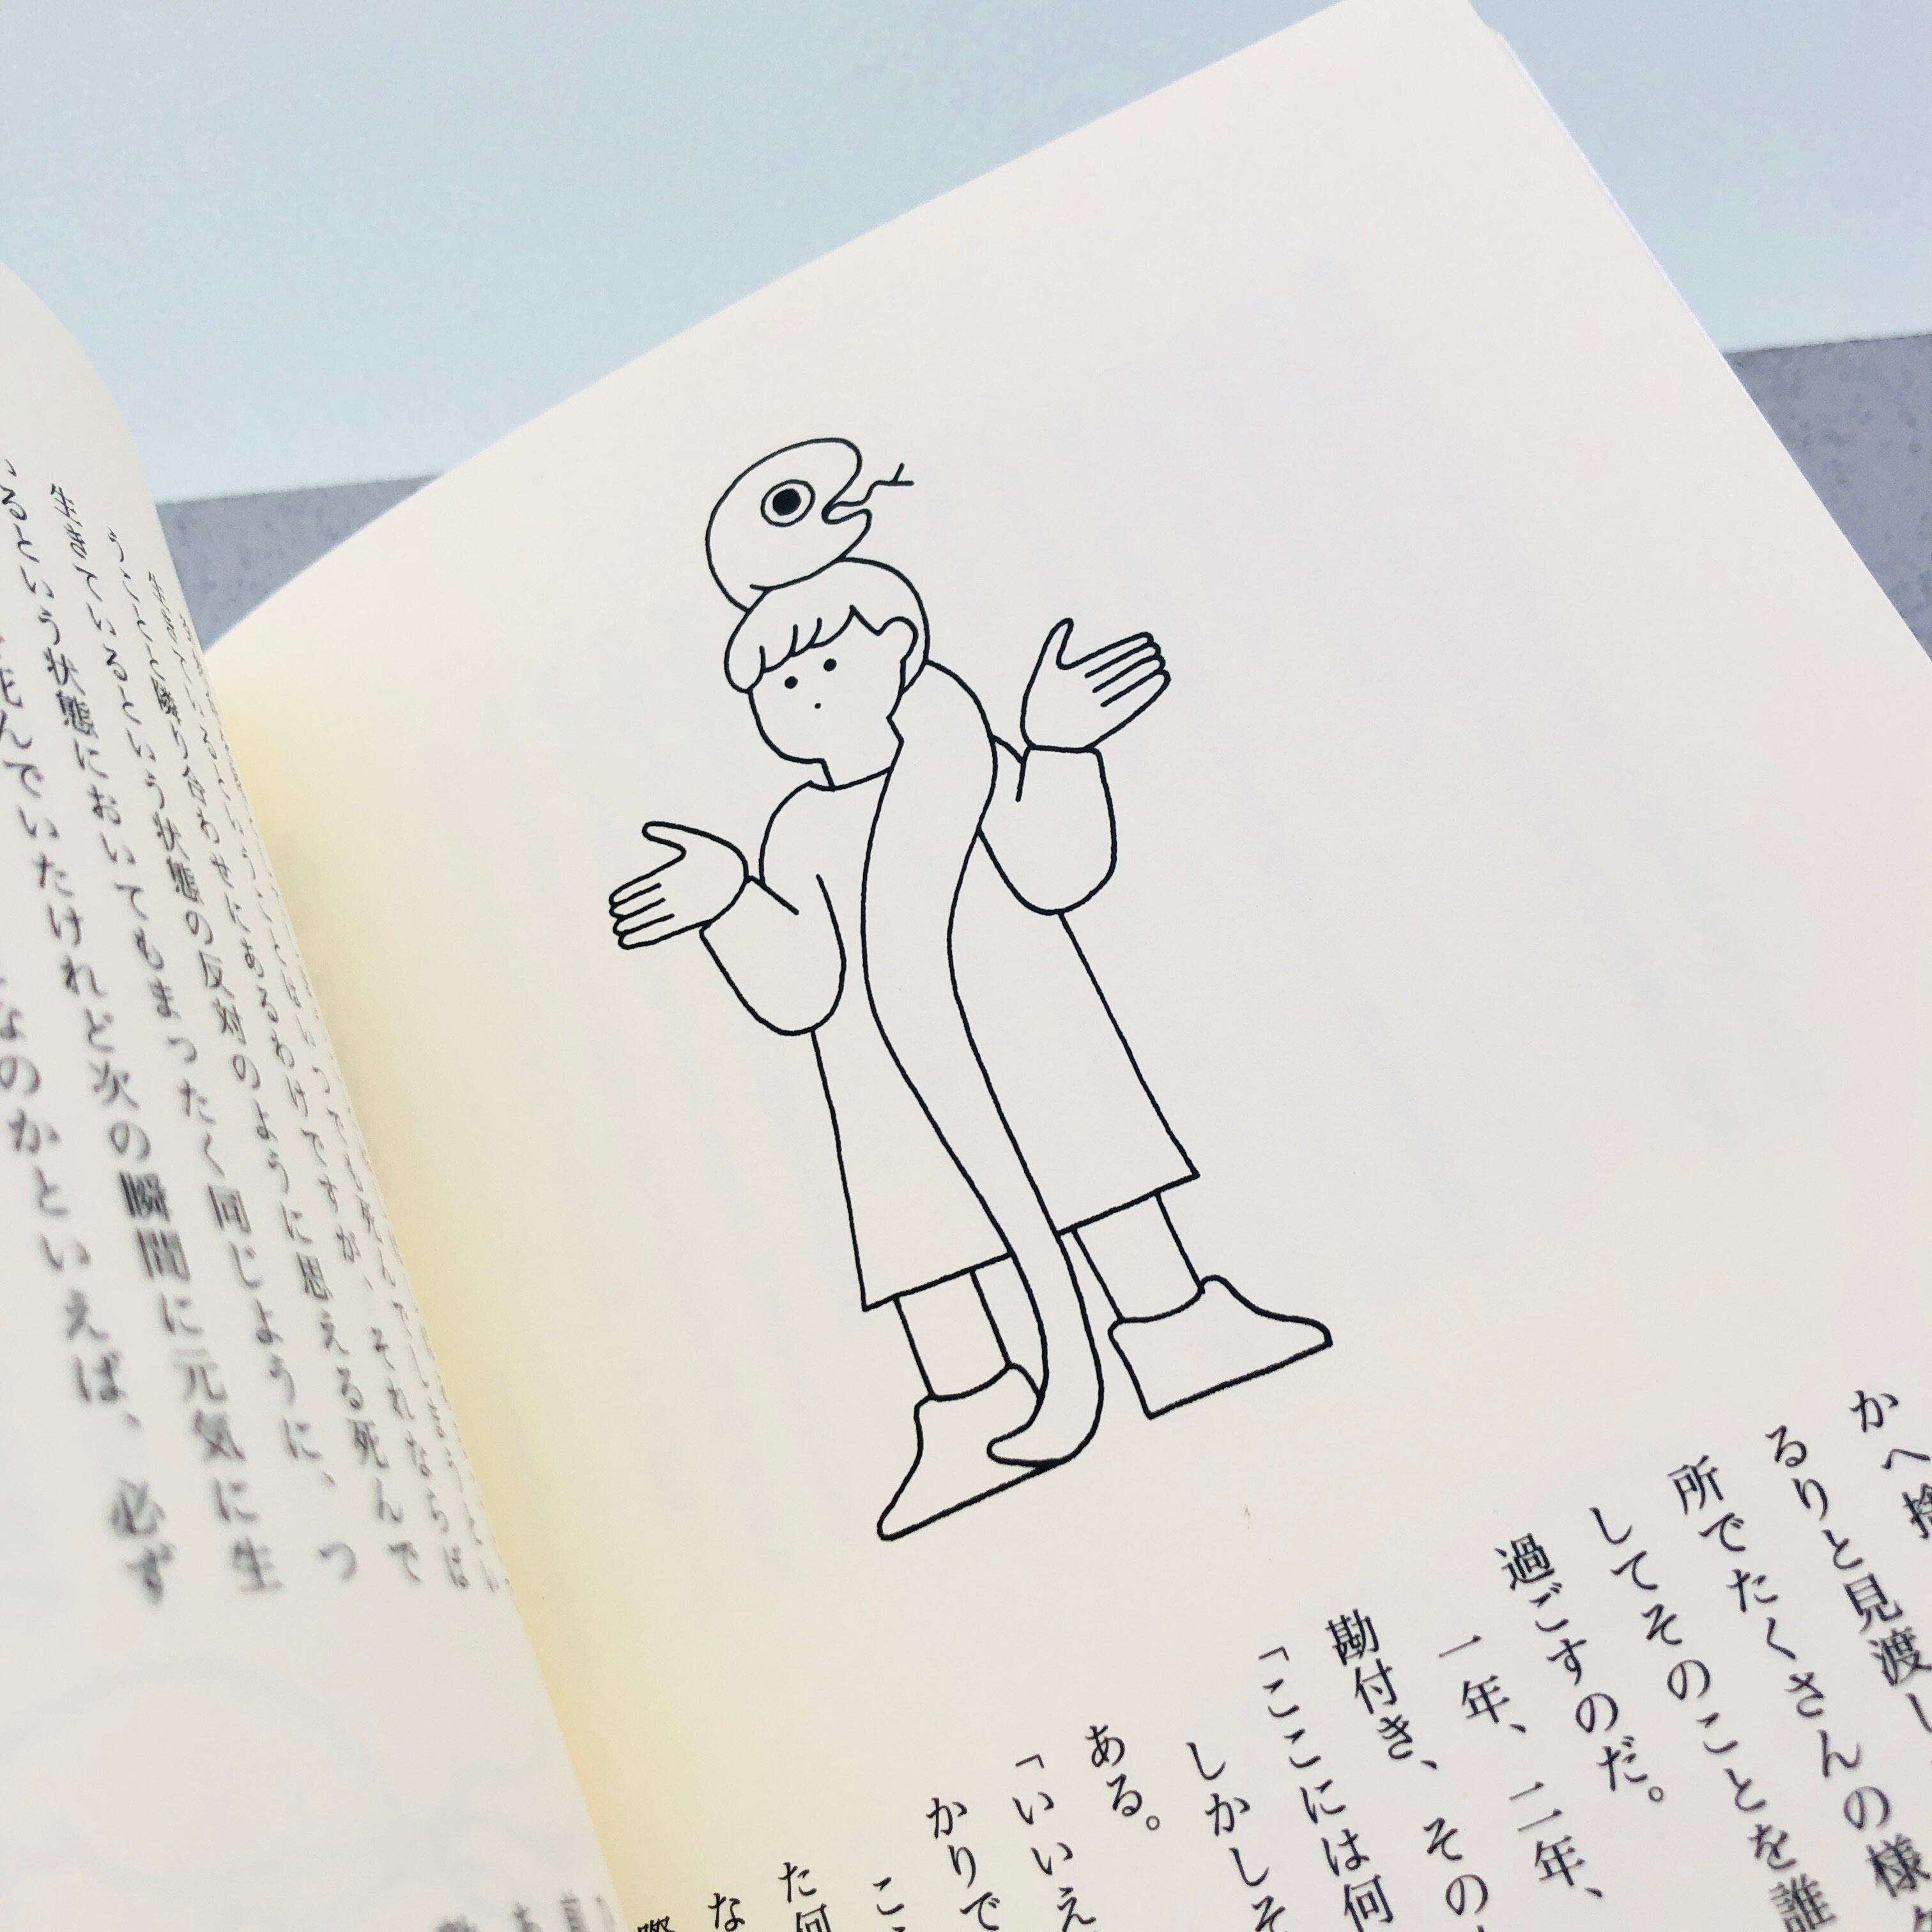 か へ捨
るりと見渡し
所でたくさんの様
してそのことを誰
過ごすのだ。
一年、二年、
勘付き、その
「ここには何
しかしそ
ある。
「いいえ
かりで
こ
た何
な
際
生きているということはいつでも死んでしまうとい
うことと隣り合わせにあるわけですが、それならば
生きているという状態の反対のように思える死んで
いるという状態においてもまったく同じように、つ
死んでいたけれど次の瞬間に元気に生
なのかといえば、必ず